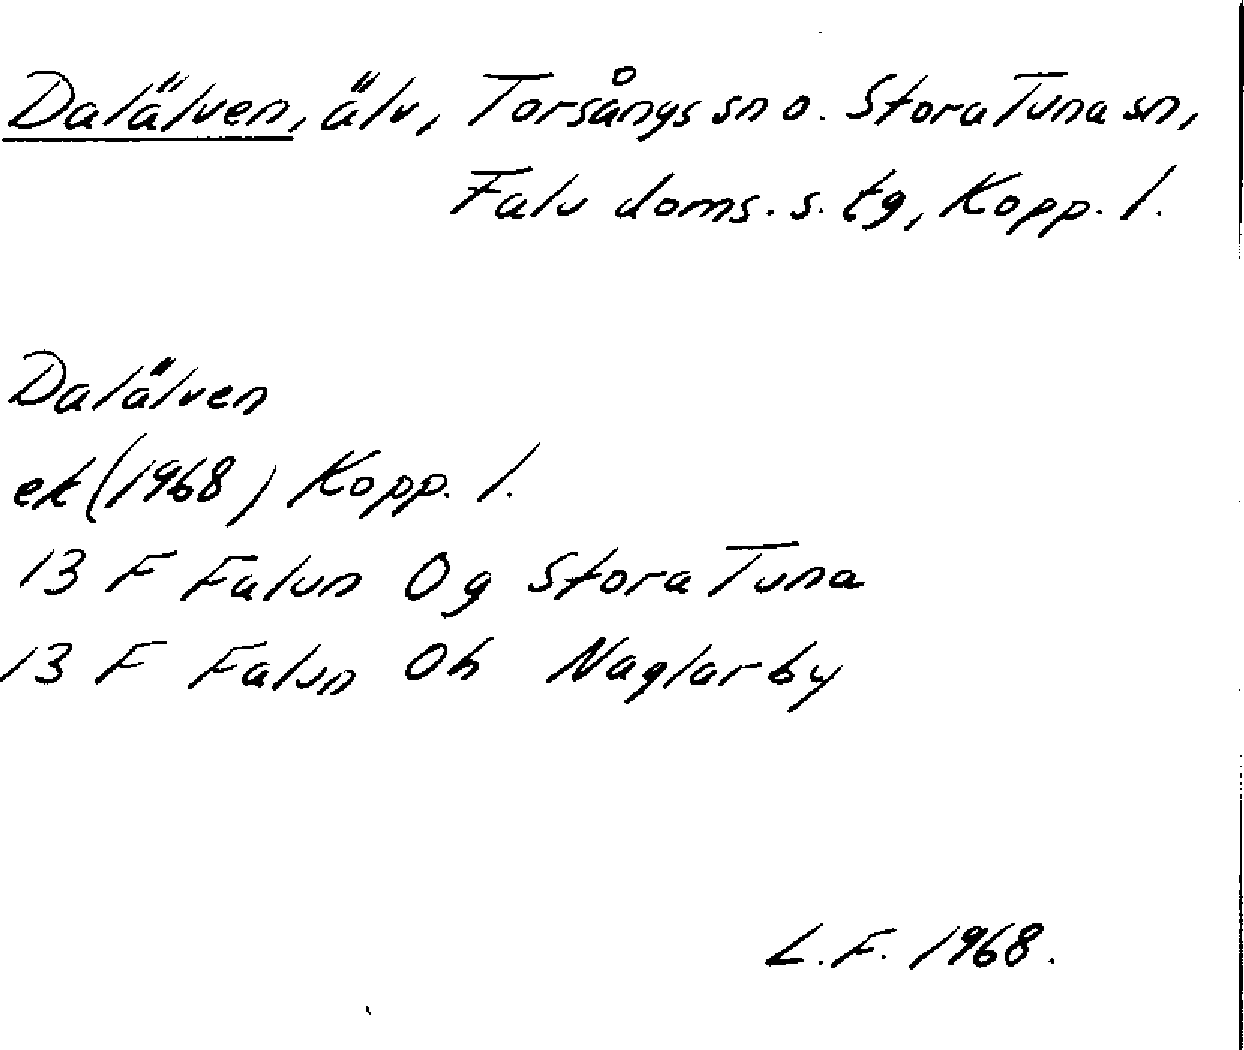 Dalälven, älv, Torsångs sn o. Stora Tuna sn,
Falu doms. s. tg, Kopp. l.
Dalälven
ek (1968) Kopp. l.
13 F Falun 0 g Stora Tuna
13 F Falun 0h Naglarby
L.F. 1968.